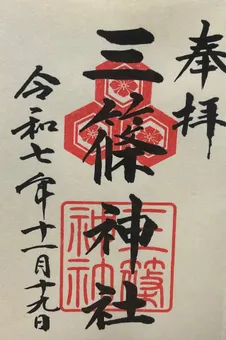 奉拝
三篠神社
令和七年十一月十九日
三篠
神社